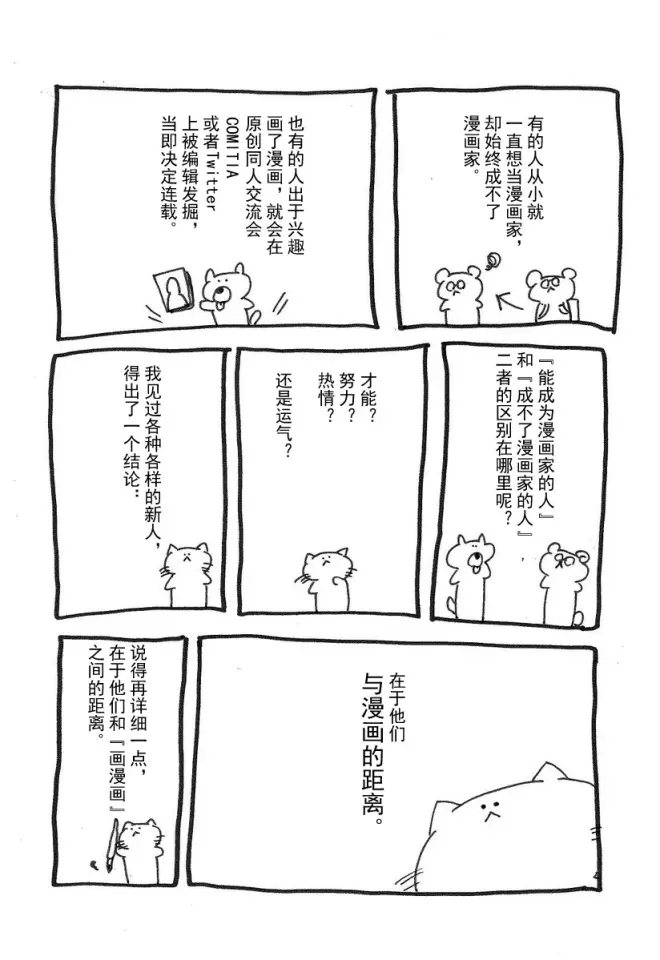 有的人从小就
一直想当漫画家，
却始终成不了
漫画家。
也有的人出于兴趣
画了漫画，就会在
原创同人交流会
COMITIA
或者Twitter
上被编辑发掘，
当即决定连载。
『能成为漫画家的人』
和『成不了漫画家的人』
二者的区别在哪里呢？
才能？
努力？
热情？
还是运气？
我见过各种各样的新人，
得出了一个结论：
在于他们
与漫画的距离。
说得再详细一点，
在于他们和『画漫画』
之间的距离。